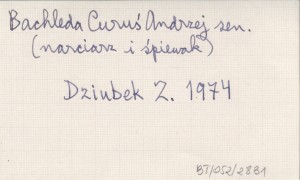 Bachleda Curuś Andrzej sen.
(narciarz i śpiewak)
Dziubek Z. 1974
BT/052/2831